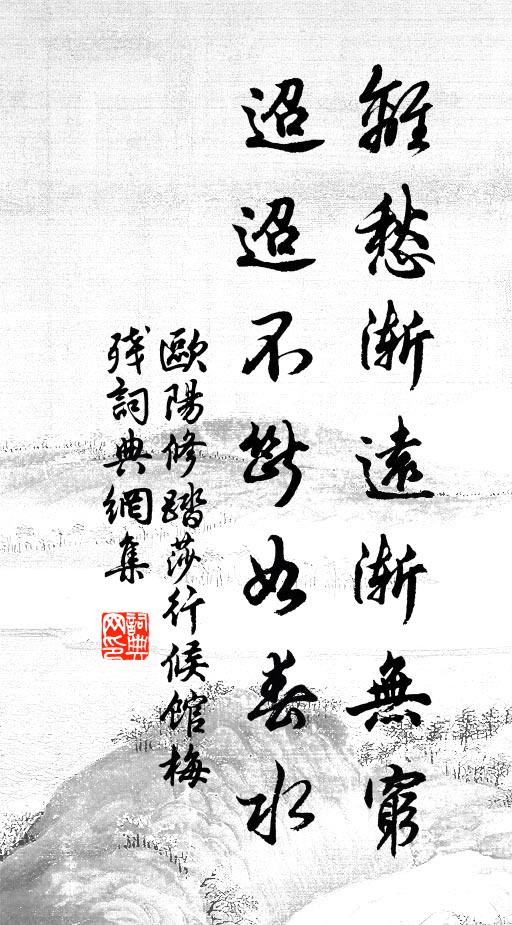 離愁漸遠漸無窮
迢迢不斷如春水
歐陽修踏莎行候館梅
殘詞典網集
詞典网印